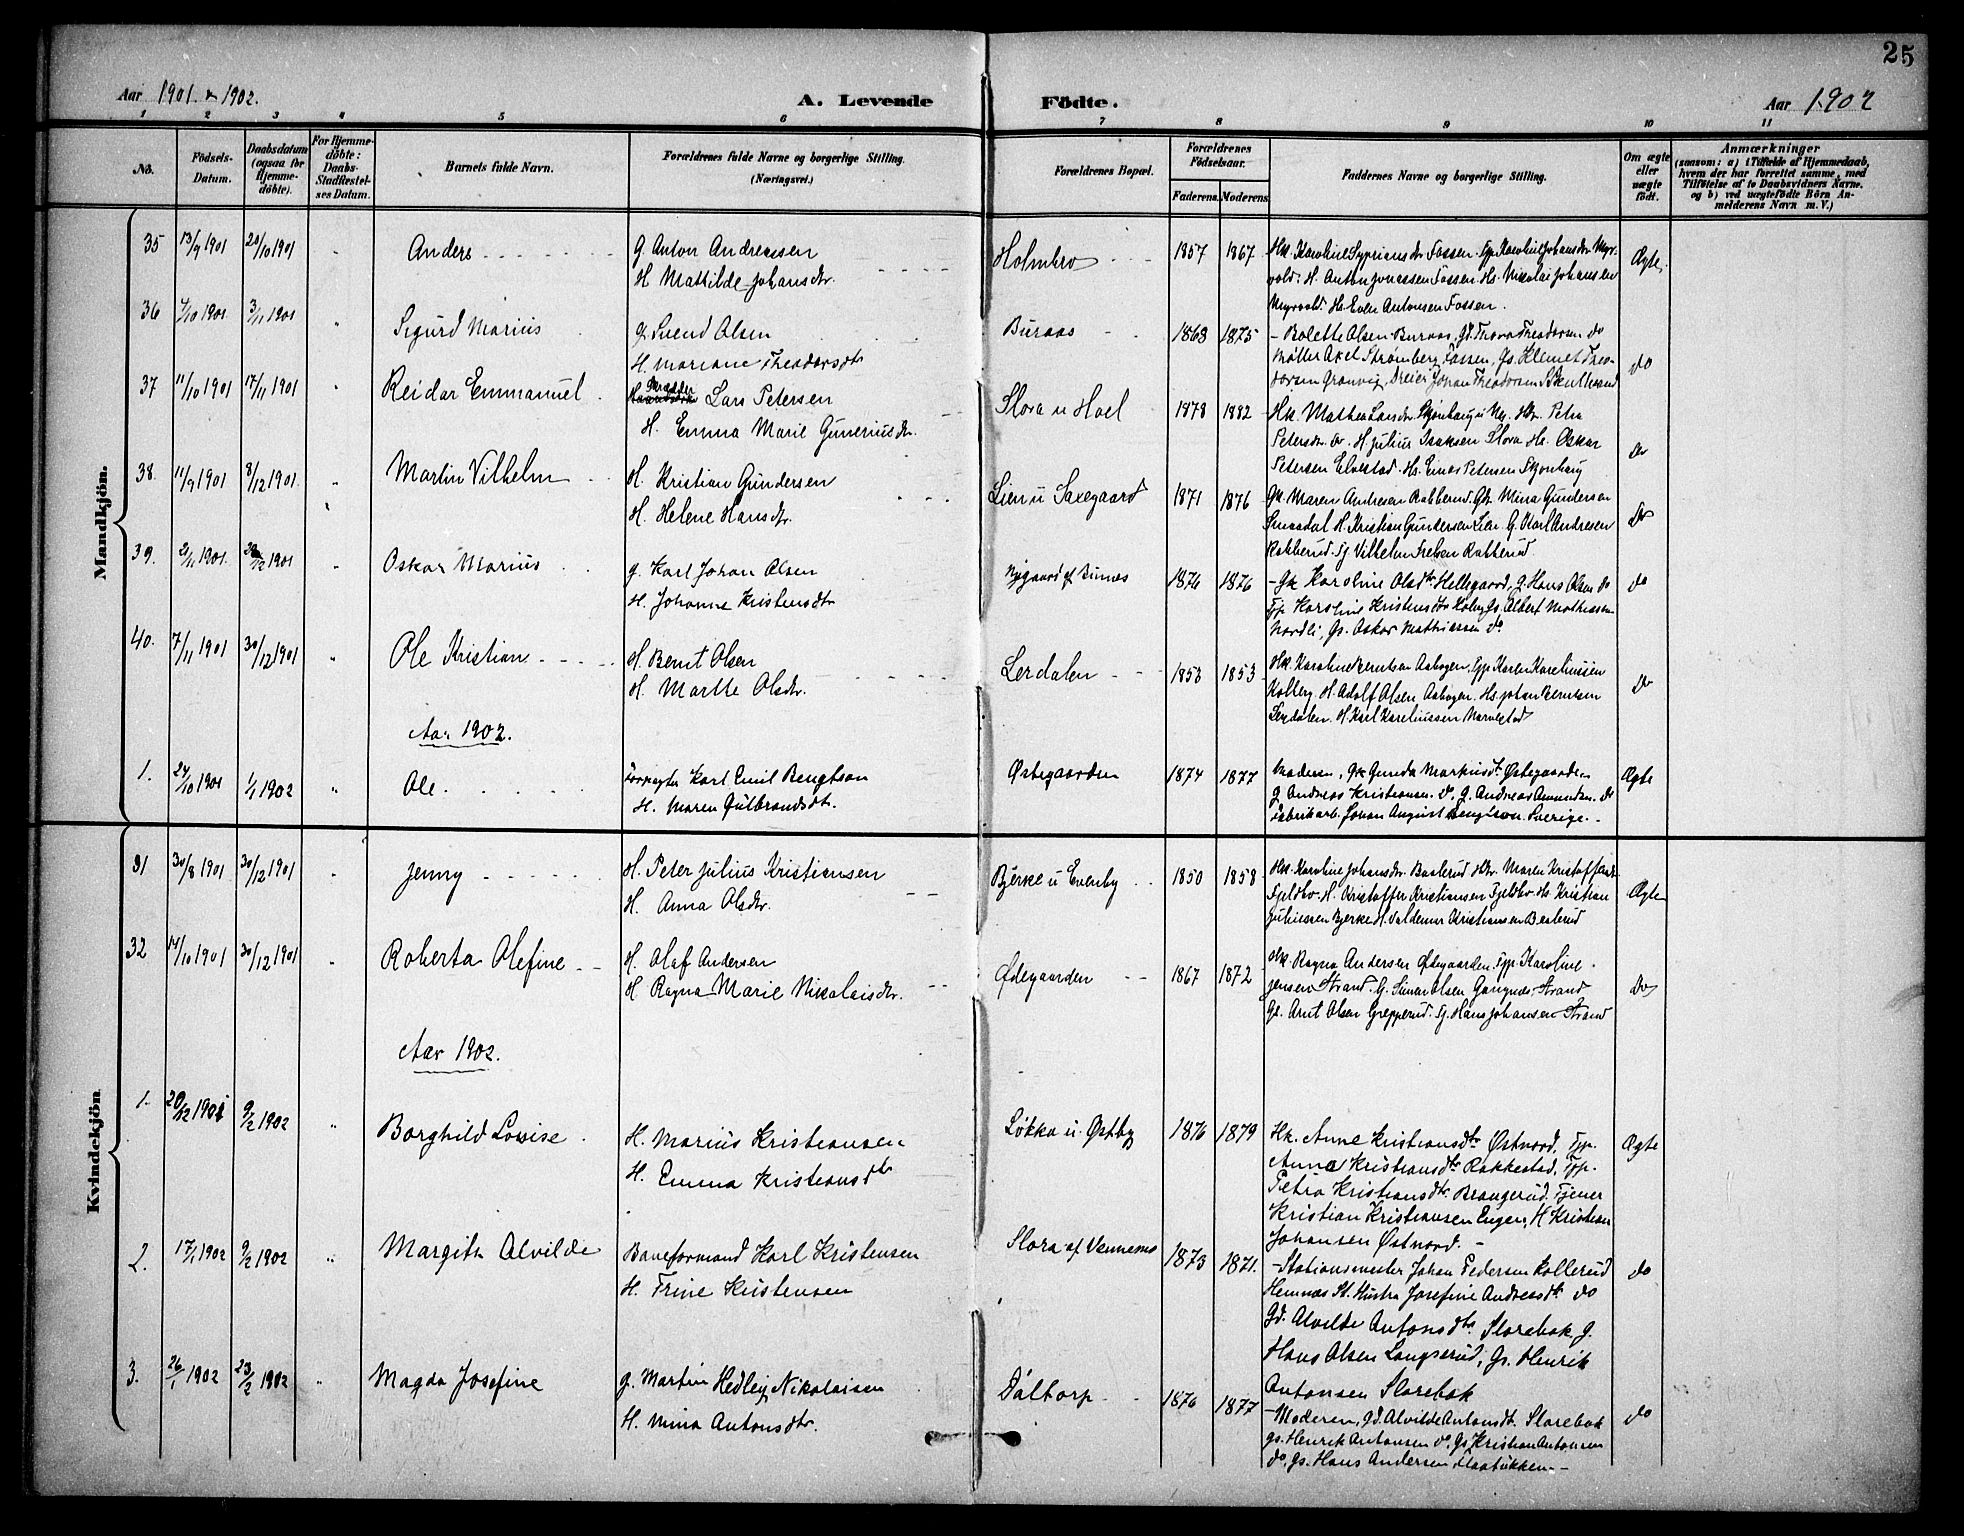 25
Aar 1901 & 1902.
A. Levende Födte.
Aar 1902
1 2 3 4 5 6 7 8 9 10 11
No.
Födsels-Datum.
Daabsdatum (ogsaa for Hjemme-döbte).
For Hjemme-döbte: Daabs-Stadfæstel-ses Datum.
Barnets fulde Navn.
Forældrenes fulde Navne og borgerlige Stilling.
(Næringsvei.)
Forældrenes Bopæl.
Forældrenes Födselsaar.
Faderens. Moderens.
Faddernes Navne og borgerlige Stilling.
Om ægte eller uægte födt.
Anmærkninger
(saasom: a) i Tilfælde af Hjemmedaab,
hvem der har forrettet samme, med
Tilföielse af to Daabsvidners Navne.
og b) ved uægtefödte Börn An-
melderens Navn m. V.)
Mandkjön.
35 13/9 1901 20/10 1901 Anders
G. Anton Andreassen
H Mathilde Johansdtr.
Holmbro 1857 1867
Hk. Karoline Syprians dtr Fossen. Tjp. Karoline Johansdtr Myr-
vold. H. Anton Jonassen Fossen. Hs. Nikolai Johansen
Myrvold. Hs. Even Antonsen Fossen.
Ægte.
36 4/10 1901 3/11 1901 Sigurd Marius
G. Svend Olsen
H. Mariane Theodorsdtr
Buraas 1868 1875
- Bolette Olsen Buraas, Gd. Thora Theodorsen do
Møller Axel Strømberg Fossen, Gs. Klemet Theo-
dorsen Granvig, Dreier Johan Theodorsen
do
37 11/10 1901 17/11 1901 Reidar Emmanuel
Skrædder Lars Petersen
H. Emma Marie Guneriusdtr.
Slora u Hoel 1878 1882
Hk. Mathea Larsdtr. Skjønhaug u Ng. Petra
Petersdtr. H. Julius Isaksen Slora Hs. Oskar
Petersen Elvestad. Hs. Einar Petersen Skjønhaug
do
38. 11/9 1901 8/12 1901. Martin Vilhelm
H. Kristian Gundersen
H. Helene Hansdtr.
Lien u Saxegaard 1871 1876
Gk. Maren Andresen Rakkerud. Gk. Mina Gundersen
Smaadal H. Kristian Gundersen Lien. G. Karl Andresen
Rakkerud. Vilhelm
do
39. 21/11 1901. 12 1901 Oskar Marius
G. Karl Johan Olsen
H. Johanne Kristensdtr
Nygaard af Bunes 1876 1876
- Gk Karoline Olsdtr. Hellegaard, G. Hans Olsen do
Tjp. Karoline Kristensdtr Albert Mathiesen
Nordli, Gs. Oskar Mathiesen do
do
40. 7/11 1901 30/12 1901 Ole Kristian
H. Bernt Olsen
H. Marthe Olsdtr.
Lerdalen 1853 1853
Hk. Karoline Berntsen Aabogen. Tjp. Karen Kareliussen
Kolberg. H. Adolf Olsen Aabogen. Hs. Johan Berntsen
Lerdalen. H. Karl Kareliussen
do
Aar 1902.
1. 24/10 1901 1/1 1902 Ole.
Forpagter Karl Emil Bengtson
H. Maren Gulbrandsdtr.
Østegaarden 1874 1877
Moderen, Gk Gunda Markusdtr. Østegaarden
G Andreas Kristiansen do, G. Andreas Amundsen do
Fabrikarb. Johan August Bengtson Sverige. -
Ægte
Kvindekjön
31 30/8 1901 30/12 1901 Jenny
H. Peter Julius Kristiansen
H. Anna Olsdtr.
Bjerke u Evenby 1850 1858
Hk. Karoline Johansdtr. Baslerud Maren Kristoffers
Fjeldbo H. Kristoffer Kristiansen Fjeldbo Hs Kristian
Juliussen Bjerke H. Valdemar Kristiansen Baslerud
Ægte
32 14/10 1901 30/12 1901 Roberta Olefine
H. Olaf Andersen
H Ragna Marie Nikolaisdtr.
Ødegaarden 1867 1872
Hk. Ragna Andersen Ødegaarden. Tjp. Karoline
Jensen Strand. G. Simen Olsen Gangnæs, Strand
Gs. Arnt Olsen Grepperud. Hans Johansen Strand
Do
Aar 1902.
1. 20/12 1901 9/2 1902 Borghild Lovise
H. Marius Kristiansen
H. Emma Kristiansdtr
Løkka u. Østby 1876 1879
Hk. Anne Kristiansdtr Østnord, Tjp.
Anna Kristiansdtr Rakkestad, Tjp.
Petra Kristiansdtr. Brangerud. Tjener
Kristian Kristiansen Engen, H Kristian
Johansen Østnord. -
Ægte
2. 17/1 1902 9/2 1902 Margith Alvilde
Baneformand Karl Kristensen
H. Trine Kristensen
Slora af Vennemo 1873 1871.
- Stationsmester Johan Pedersen Kollerud
Hemnæs St. Hustru Josefine Andreasdtr do
Gd. Alvilde Antonsdtr Slorebak, G.
Hans Olsen Langserud, Gs. Henrik
Antonsen Slorebak
do
3. 26/1 1902 23/2 1902 Magda Josefine
G. Martin Hedley Nikolaisen
H. Mina Antonsdtr.
Daltorp 1876 1877
- Moderen, Gd. Alvilde Antonsdtr. Slorebak
Gs. Henrik Antonsen do, Gs Kristian Antonsen
do, Gs. Hans Andersen
do